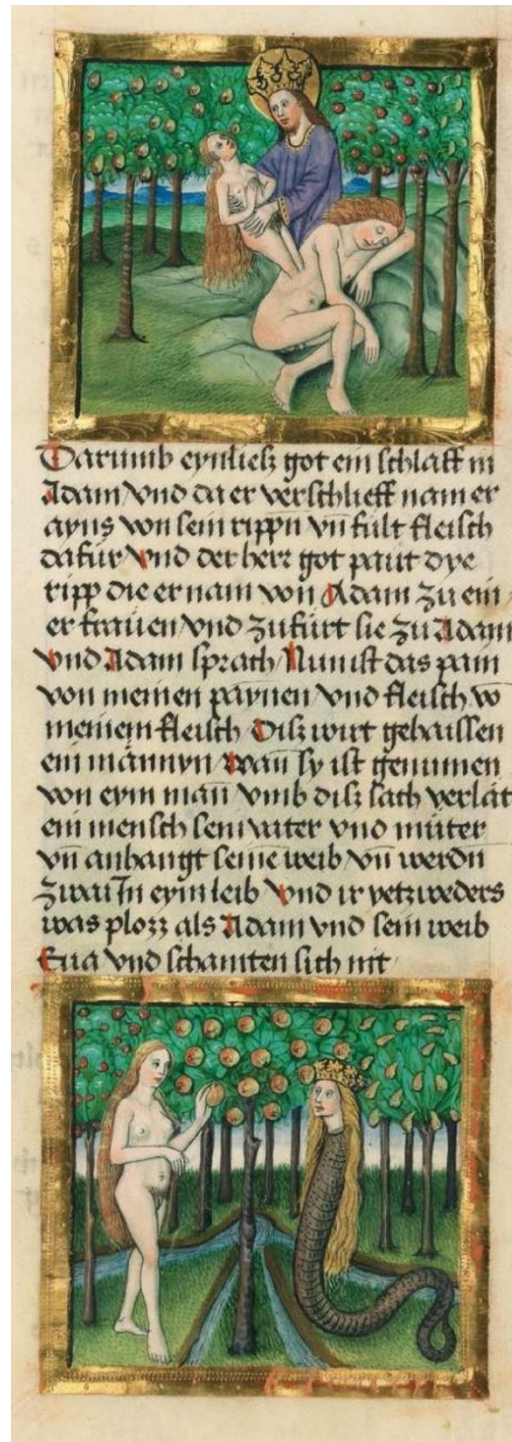 Darumb eynliesz got ein schlaff in
Adam vnd da er verschlieff nam er
ayns von sein rippn vn̄ fult fleisch
dafur vnd der herr got paut dye
ripp die er nam von Adam zu ein
er frauen vnd zufürt sie zu Adam
vnd Adam sprach Nun ist das pain
von meinen paynen vnd fleisch vō
meinem fleisch Disz wirt gehaissen
ein männyn wañ sy ist genumen
von eym mañ vmb disz sach verlät
ein mensch sein vater vnd muter
vn̄ anhangt seinē weib vn̄ werdn
zwai In eym leib vnd ir yetzweders
was plozz als Adam vnd sein weib
Eua vnd schamten sich nit